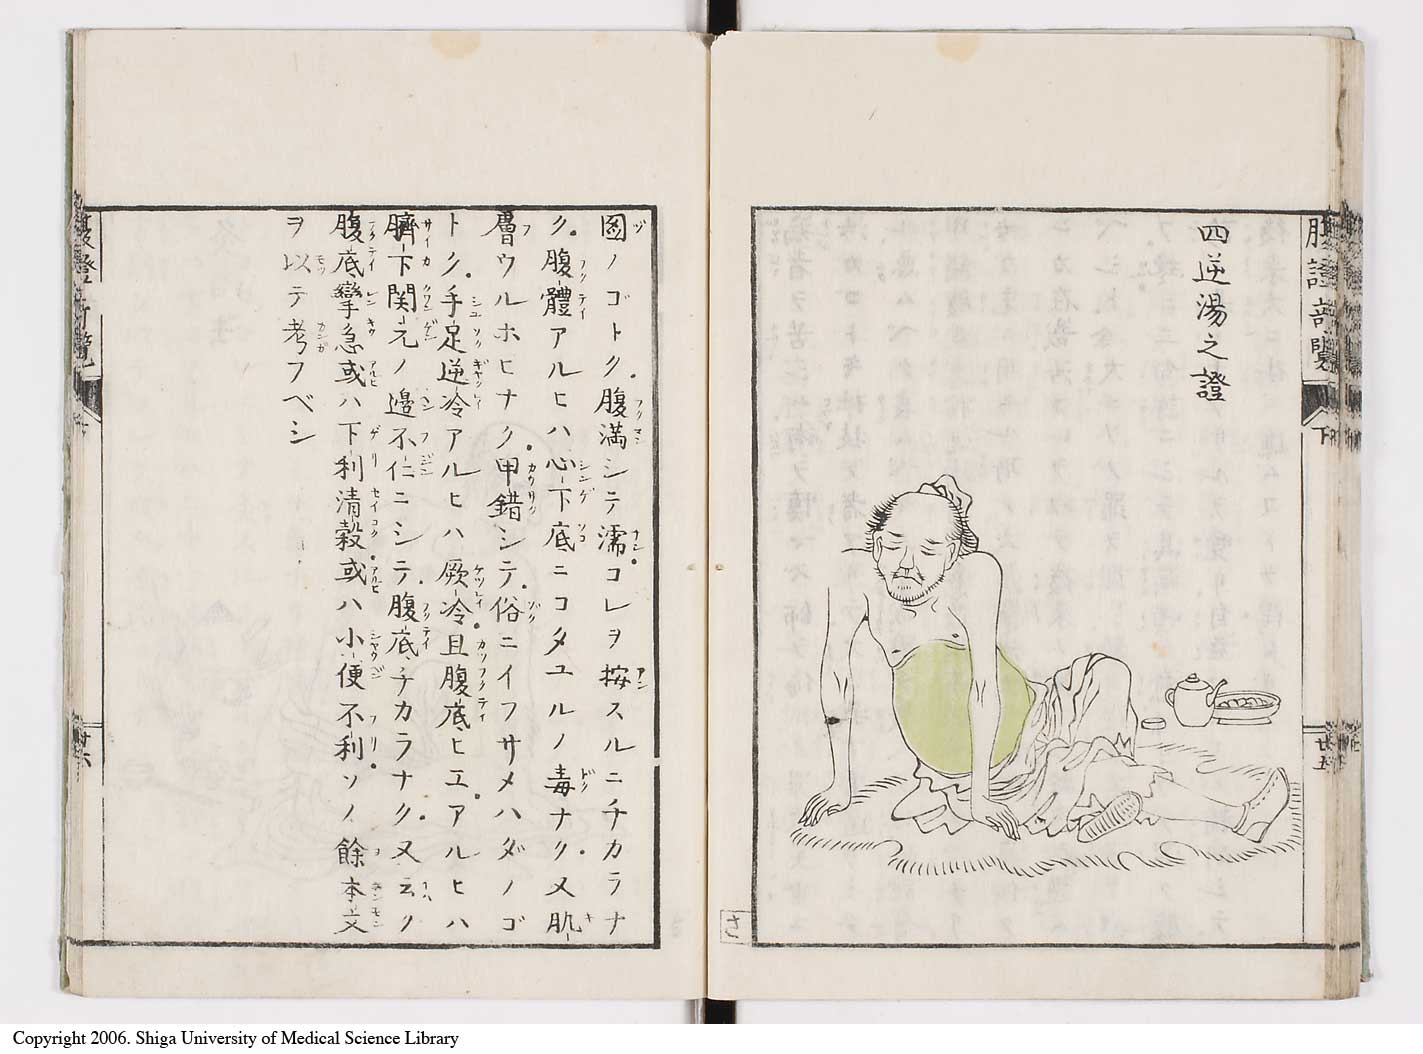 四逆湯之證
下
廿五
さ
圖ノゴトク腹満シテ濡コレヲ按スルニチカラナ
ク腹體アルヒハ心下底ニコタユルノ毒ナク又肌
膚ウルホヒナク甲錯シテ俗ニイフサメハダノゴ
トク手足逆冷アルヒハ厥冷且腹底ヒエアルヒハ
臍下関元ノ邉不仁ニシテ腹底チカラナク又云ク
腹底攣急或ハ下利清穀或ハ小便不利ソノ餘本文
ヲ以テ考フベシ
廿六
Copyright 2006. Shiga University of Medical Science Library